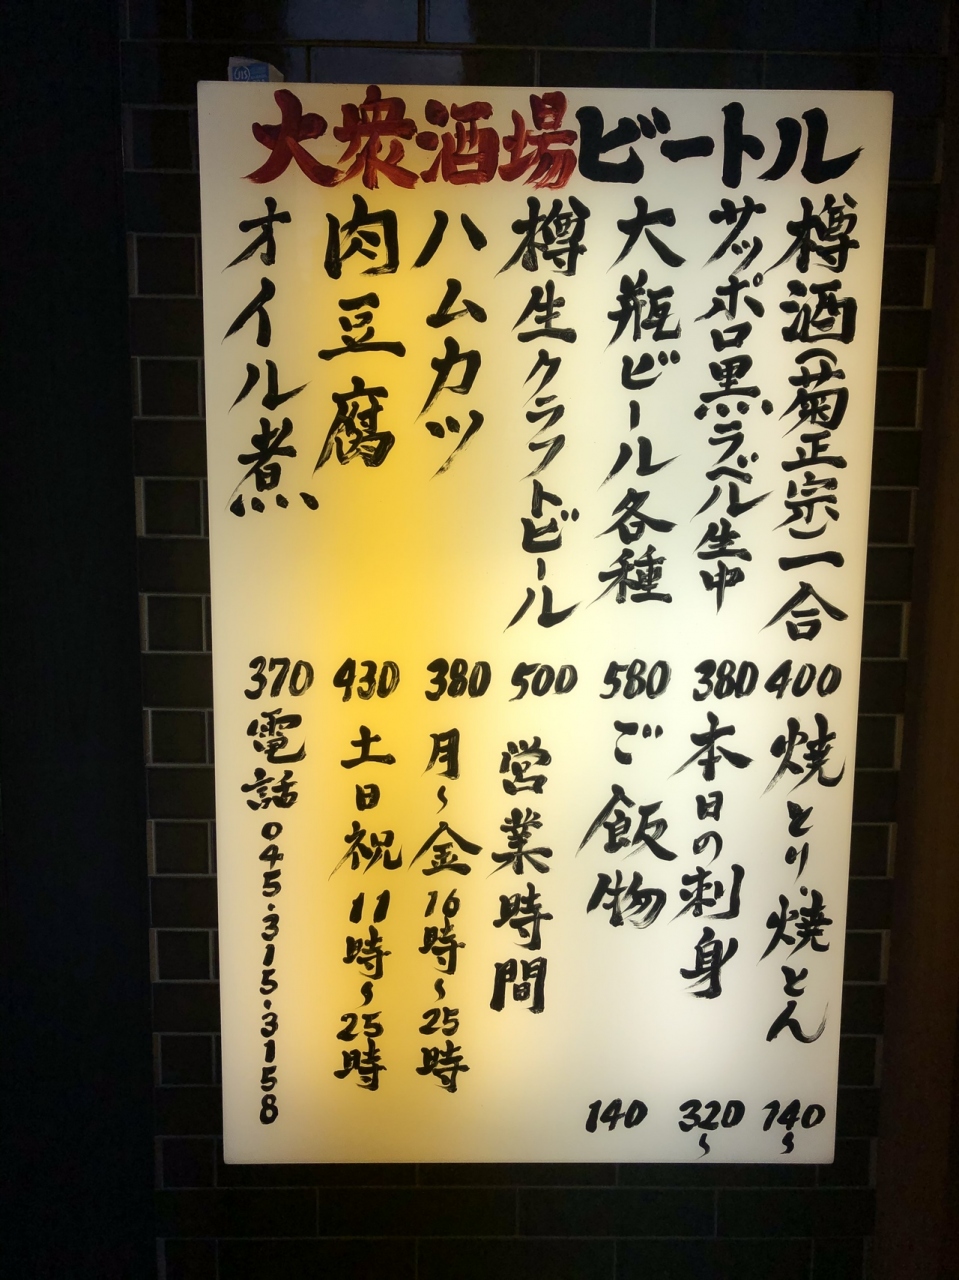 大衆酒場ビートル
樽酒(菊正宗)一合 400
サッポロ黒ラベル生中 380
大瓶ビール各種 580
樽生クラフトビール 500
ハムカツ 380
肉豆腐 430
オイル煮 370
焼とり・焼とん 140〜
本日の刺身 320〜
ご飯物 140
営業時間
月〜金 16時〜25時
土日祝 11時〜25時
電話 045・315・3158